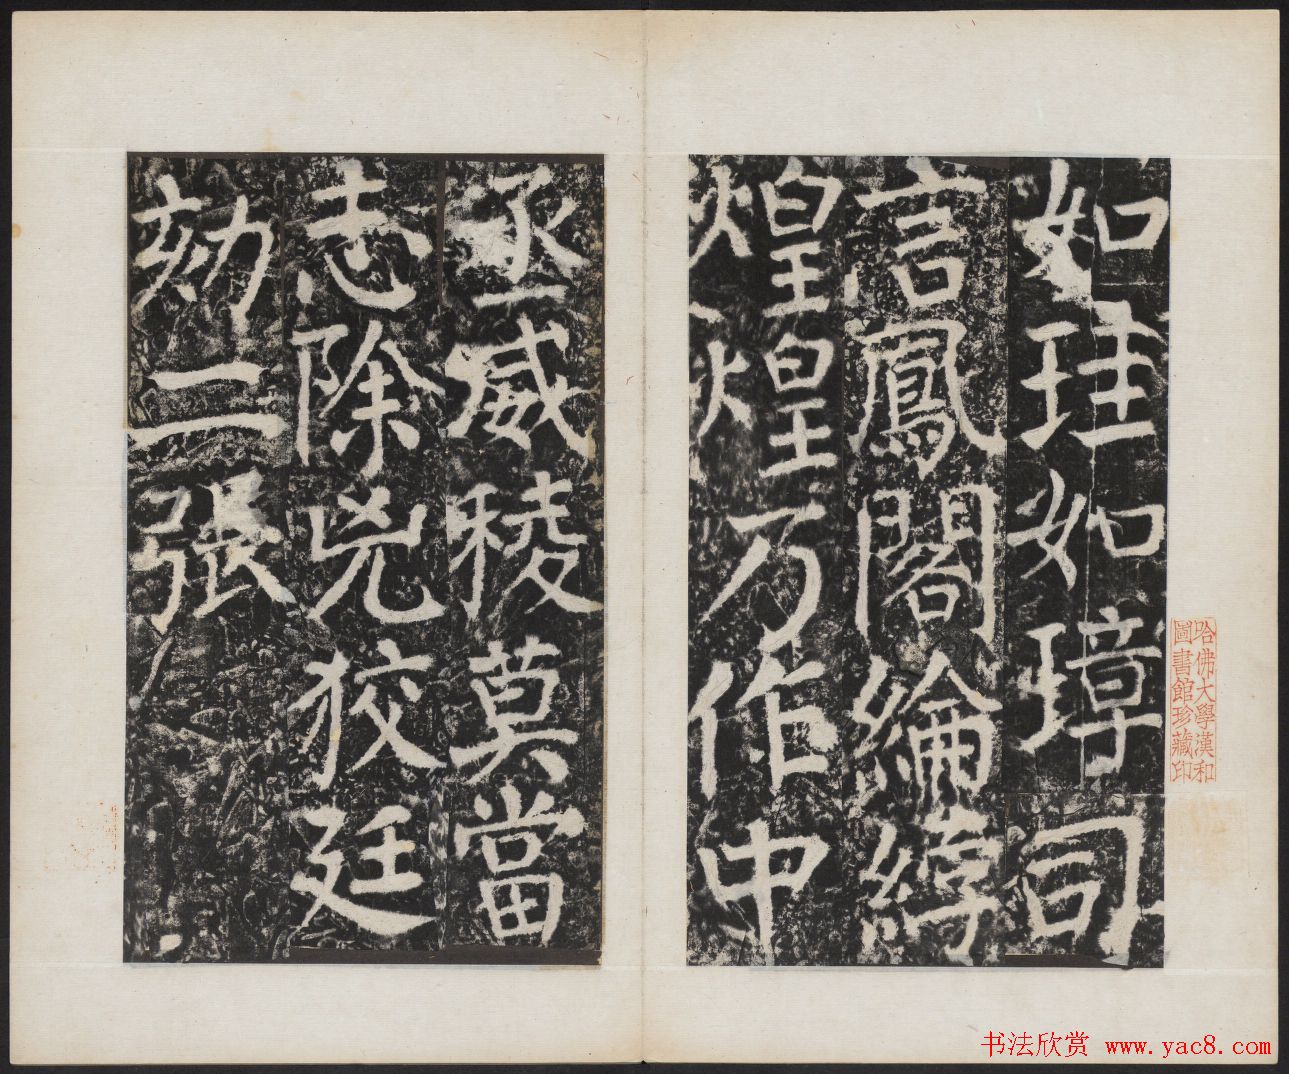 如珪如璋司
言鳳閣綸綍
煌煌乃作中
丞威稜莫當
志除兇狡廷
劾二張
哈佛大學漢和
圖書館珍藏印
书法欣赏 www.yac8.com